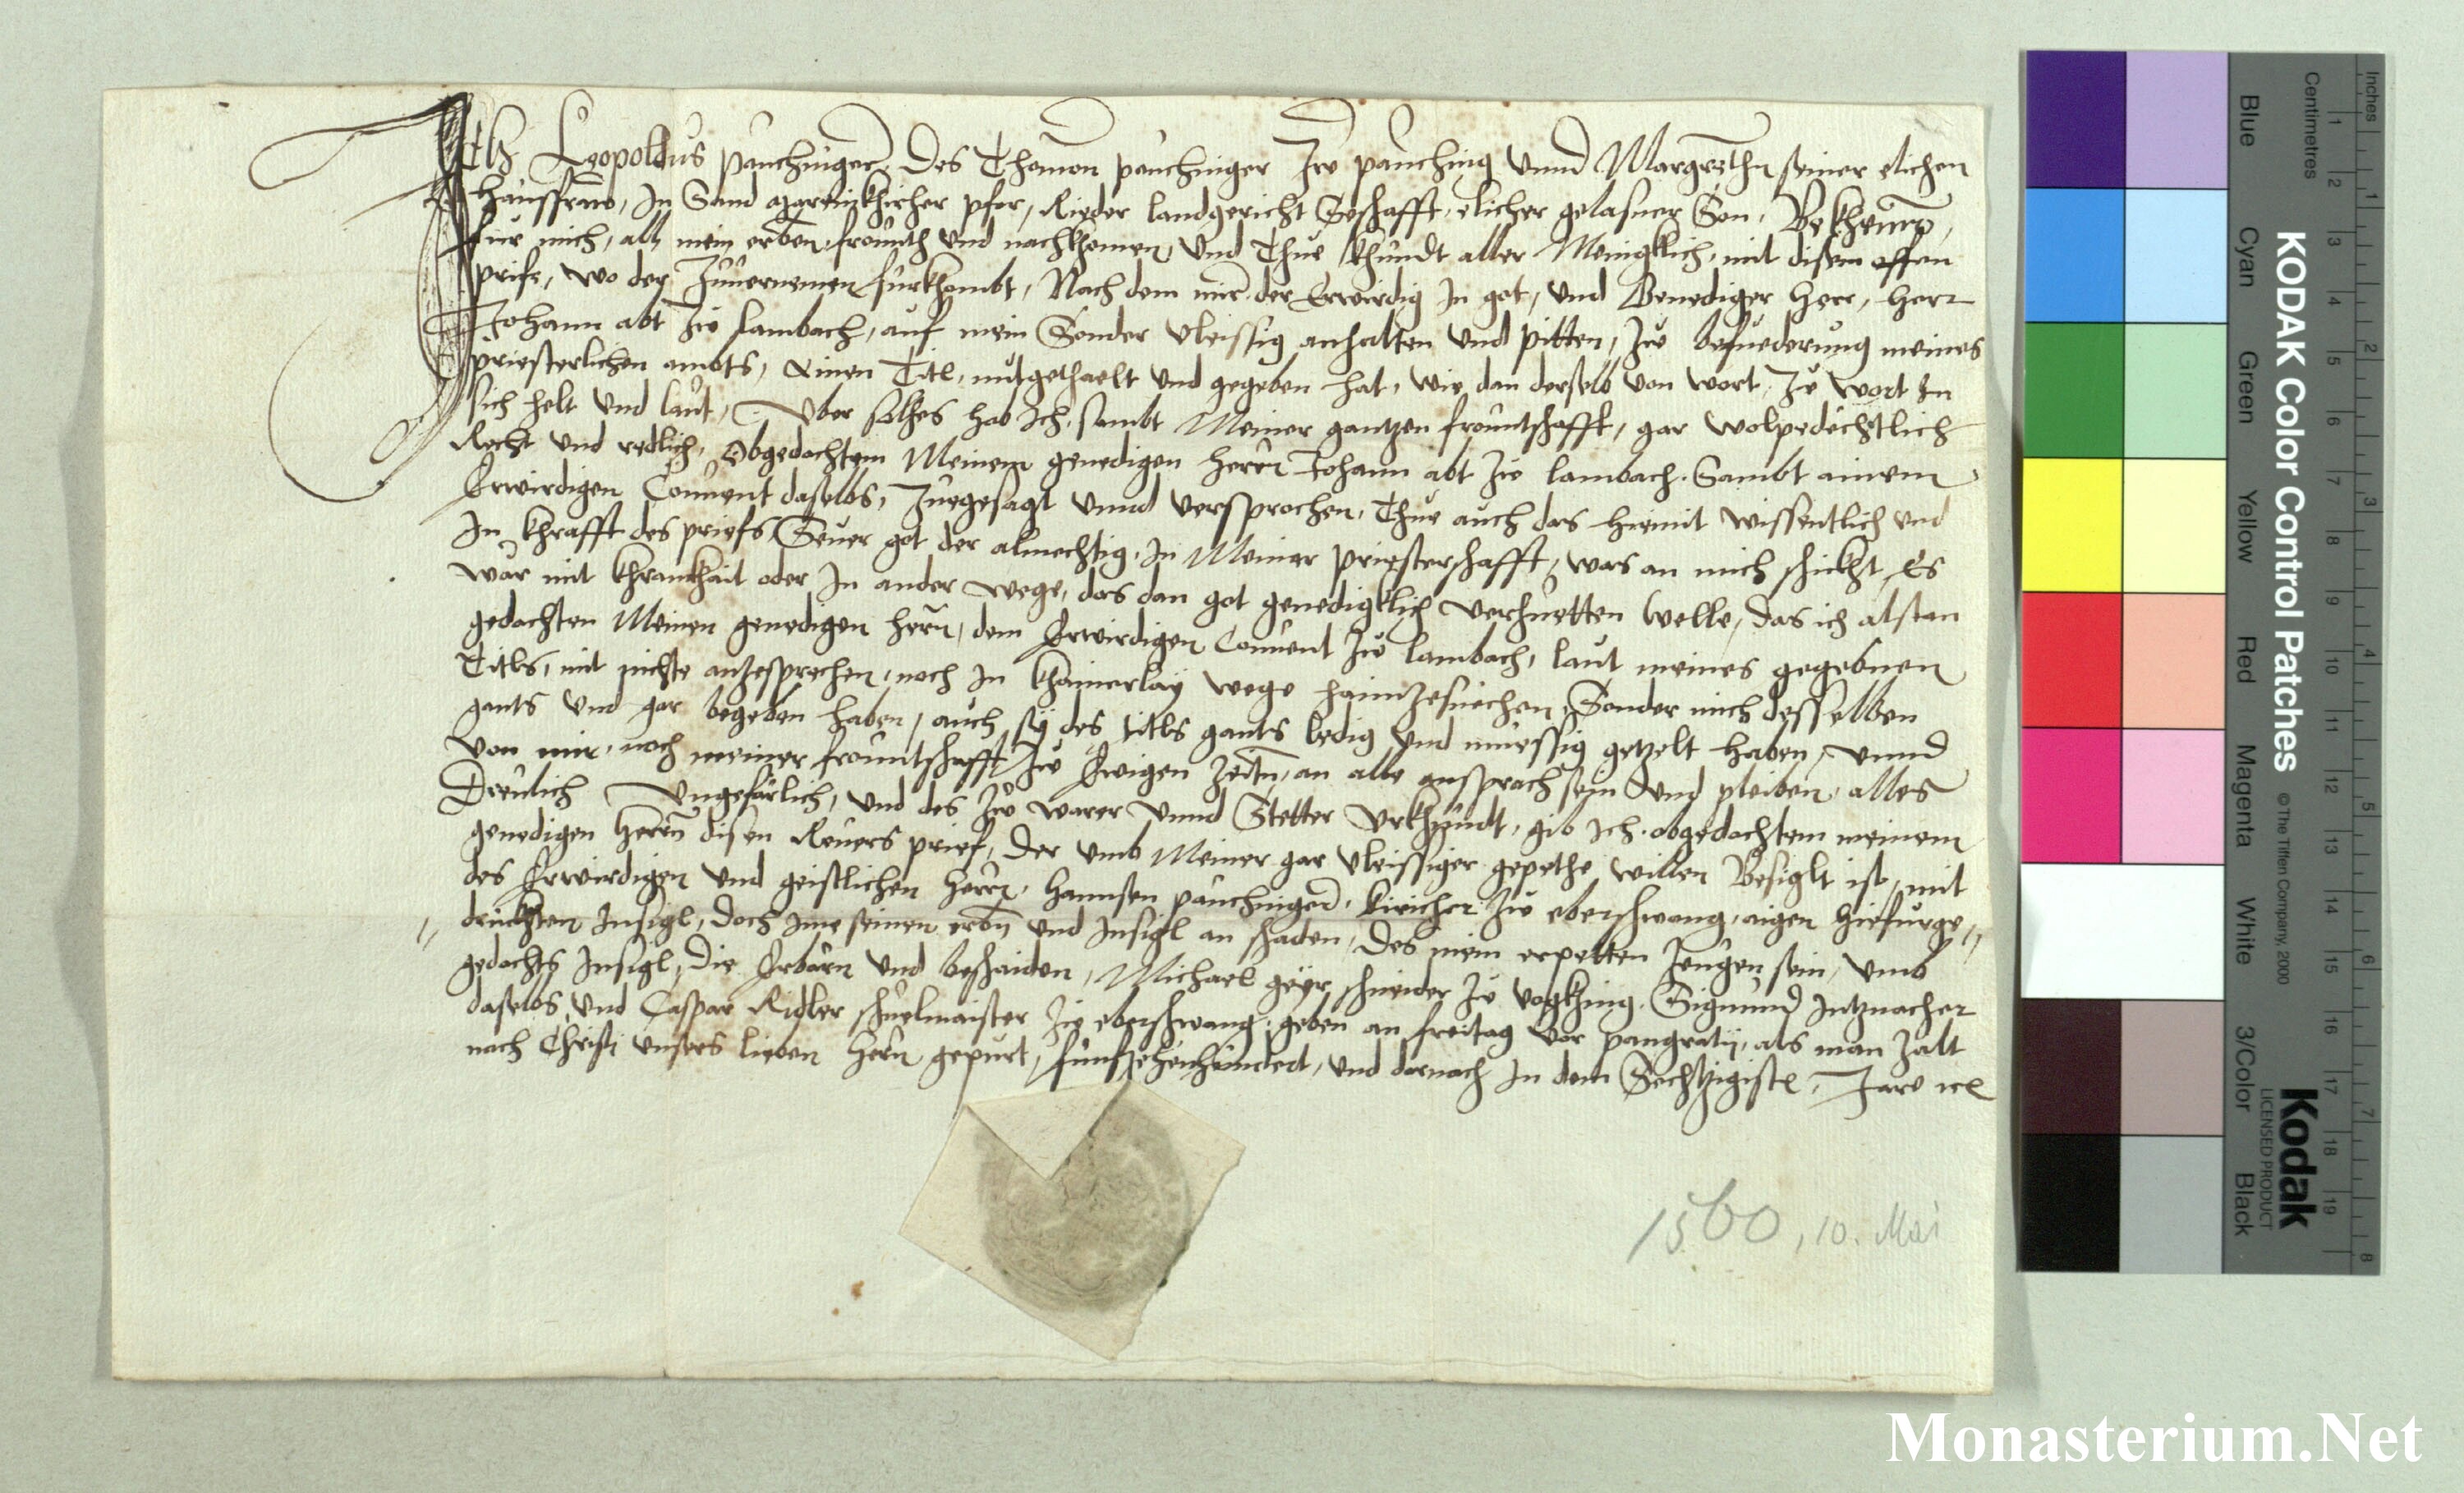 Ich Leopoldus panchinger, des Thoman panchinger Zw panching vnnd Margrethn seiner elichen
haussfraw, In Sand mareinkhircher pfar, Rieder landgericht Seshafft, elicher gelasner Son, Bekhenn
für mich, all mein erben, freunth vnd nachkhomen, vnd Thue khundt aller Menigklich, mit disem offen
prife, wo der Zuuernemen furkhombt, Nach dem mir der Erwirdig In got, vnd Genediger herr, herr
Johann abt Zw lambach, auf mein Sonder vleissig anhalten vnd pitten, Zw befuederung meines
priesterlichen ambts, Ainen Titl, mitgethaelt vnd gegeben hat, wie dan derselb von wort, Zu wort In
sich helt vnd laut, Vber solhes hab Ich, sambt Meiner gantzen freuntschafft, gar wolpedechtlich
Recht vnd redlich, Obgedachtem Meinem genedigen herrn Johann abt Zw lambach. Sambt ainem
Erwirdigen Conuent daselbs, Zuegesagt vnnd versprochen, Thue auch das hiemit wissentlich vnd
In khrafft des priefs, Seuer got der almechtig, In Meiner priesterschafft, was an mich schickht, Es
war mit khrankhait oder In ander wege, das dan got genedigklich verhuetten welle, das ich alsdan
gedachten Meinen genedigen herrn, dem Erwirdigen Conuent Zw lambach, laut meines gegebnen
Titls, mit nichte anzesprechen, noch In khainerlay wege haimzesuechen, Sonder mich desselben
gants vnd gar begeben haben, auch sy des titls gants ledig vnd muessig getzelt haben, vnnd
von mir, noch meiner freuntschafft, Zw Ewigen Zeitn, an alle ansprach sein vnd pleiben, alles
Treulich Vngefärlich, vnd des Zw warer vnnd Stetter vrkhundt, gib Ich obgedachtem meinem
genedigen herrn disen Reuers prief, Der vmb Meiner gar vleissiger gepethe willen Besiglt ist, mit
des Erwirdigen vnd geistlichen herrn, hannsen panchinger, kiricher Zw eberschwang, aigen hiefurge
druckhten Insigl, doch Ime seinen erbn vnd Insigl an schaden, Des mein erpetten Zeugen sein, vmb
gedachts Insigl, die Erbarn vnd beschaiden, Michael geyr schneider Zu vogkhing Sigmund
daselbs, vnd Caspar Ridler schuelmaister Zw eberschwang, geben an freitag vor pangratij, als man Zalt
nach Christi vnsers lieben herrn gepurt, funfzehenhundert, vnd darnach In dem Sechtzigistn, Jare
1560, 10. Mai
KODAK Color Control Patches © The Tiffen Company, 2000
Kodak
LICENSED PRODUCT
Blue Cyan Green Yellow Red Magenta White 3/Color Black
Centimetres 1 2 3 4 5 6 7 8 9 10 11 12 13 14 15 16 17 18 19
Inches 1 2 3 4 5 6 7 8
Monasterium.Net